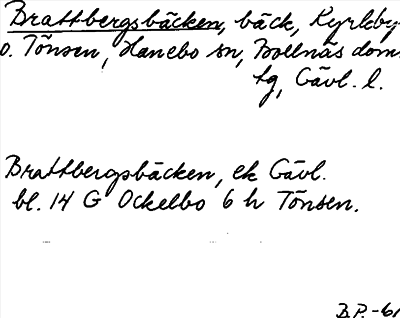 Brattbergsbäcken, bäck, Kyrkby-
o. Tönsen, Hanebo sn, Bollnäs doms.
tg, Gävl. l.
Brattbergsbäcken, ek Gävl.
bl. 14 G Ockelbo 6 h Tönsen.
B.P.-61